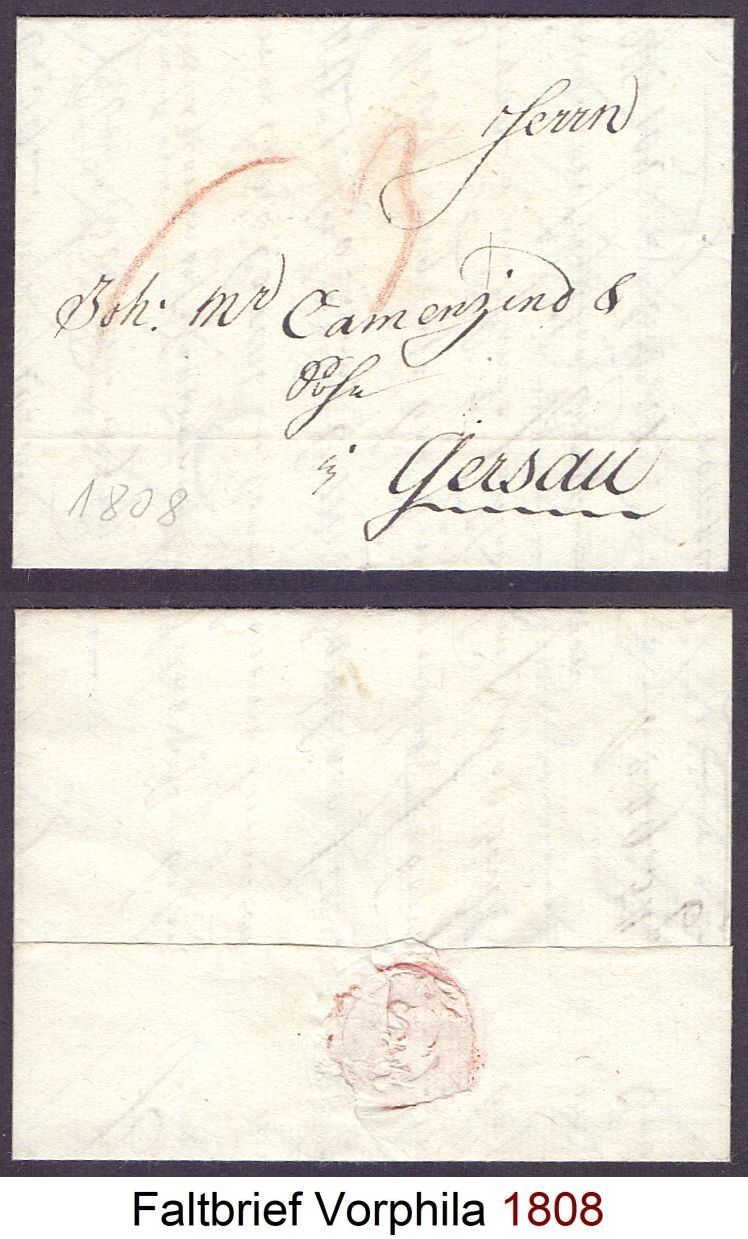 Herrn
3
Joh: Mr Camenzind &
Sohn
in
Gersau
1808
Faltbrief Vorphila 1808